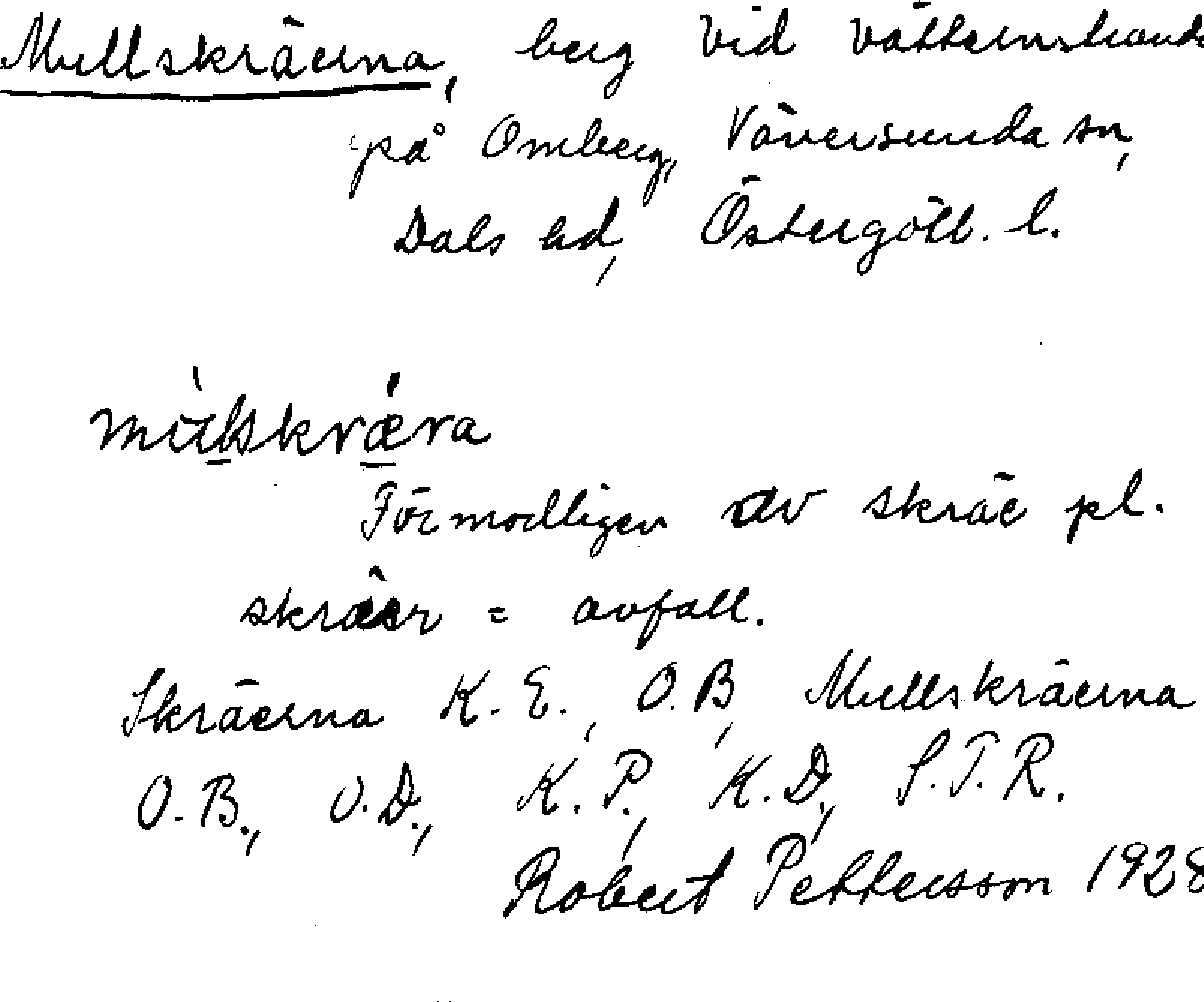 Mullskräerna, berg vid Vätternstrand
på Omberg, Väversunda sn,
Dals hd, Östergötl. l.
mulskræra
Förmodligen av skräe pl.
skräer = avfall.
Skräerna K. E., O. B, Mullskräerna
O. B., O. D., K. P., K. D., S. T. R.
Robert Pettersson 1928